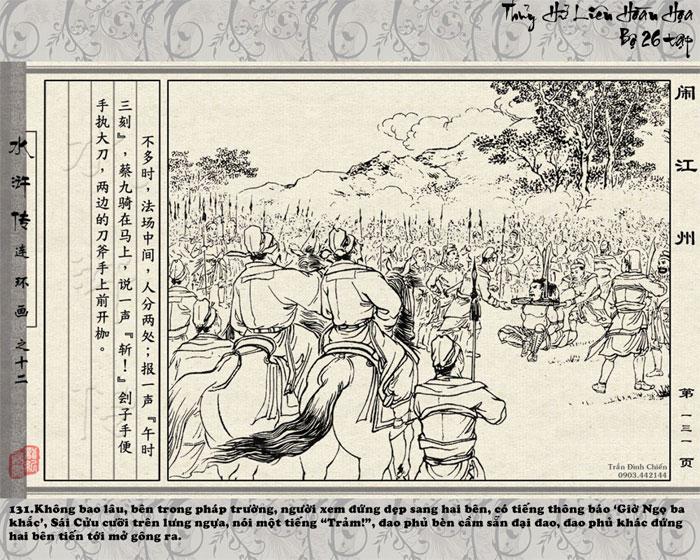 Thủy Hử Liên Hoàn Họa
Bộ 26 tập
闹江州
水浒传连环画之十二
不多时，法场中间，人分两处；报一声『午时
三刻』，蔡九骑在马上，说一声『斩！』刽子手便
手执大刀，两边的刀斧手上前开枷。
第一三一页
Trần Đình Chiến
0903.442144
131.Không bao lâu, bên trong pháp trường, người xem đứng dẹp sang hai bên, có tiếng thông báo ‘Giờ Ngọ ba
khắc’, Sái Cửu cưỡi trên lưng ngựa, nói một tiếng “Trảm!”, đao phủ bèn cầm sẵn đại đao, đao phủ khác đứng
hai bên tiến tới mở gông ra.